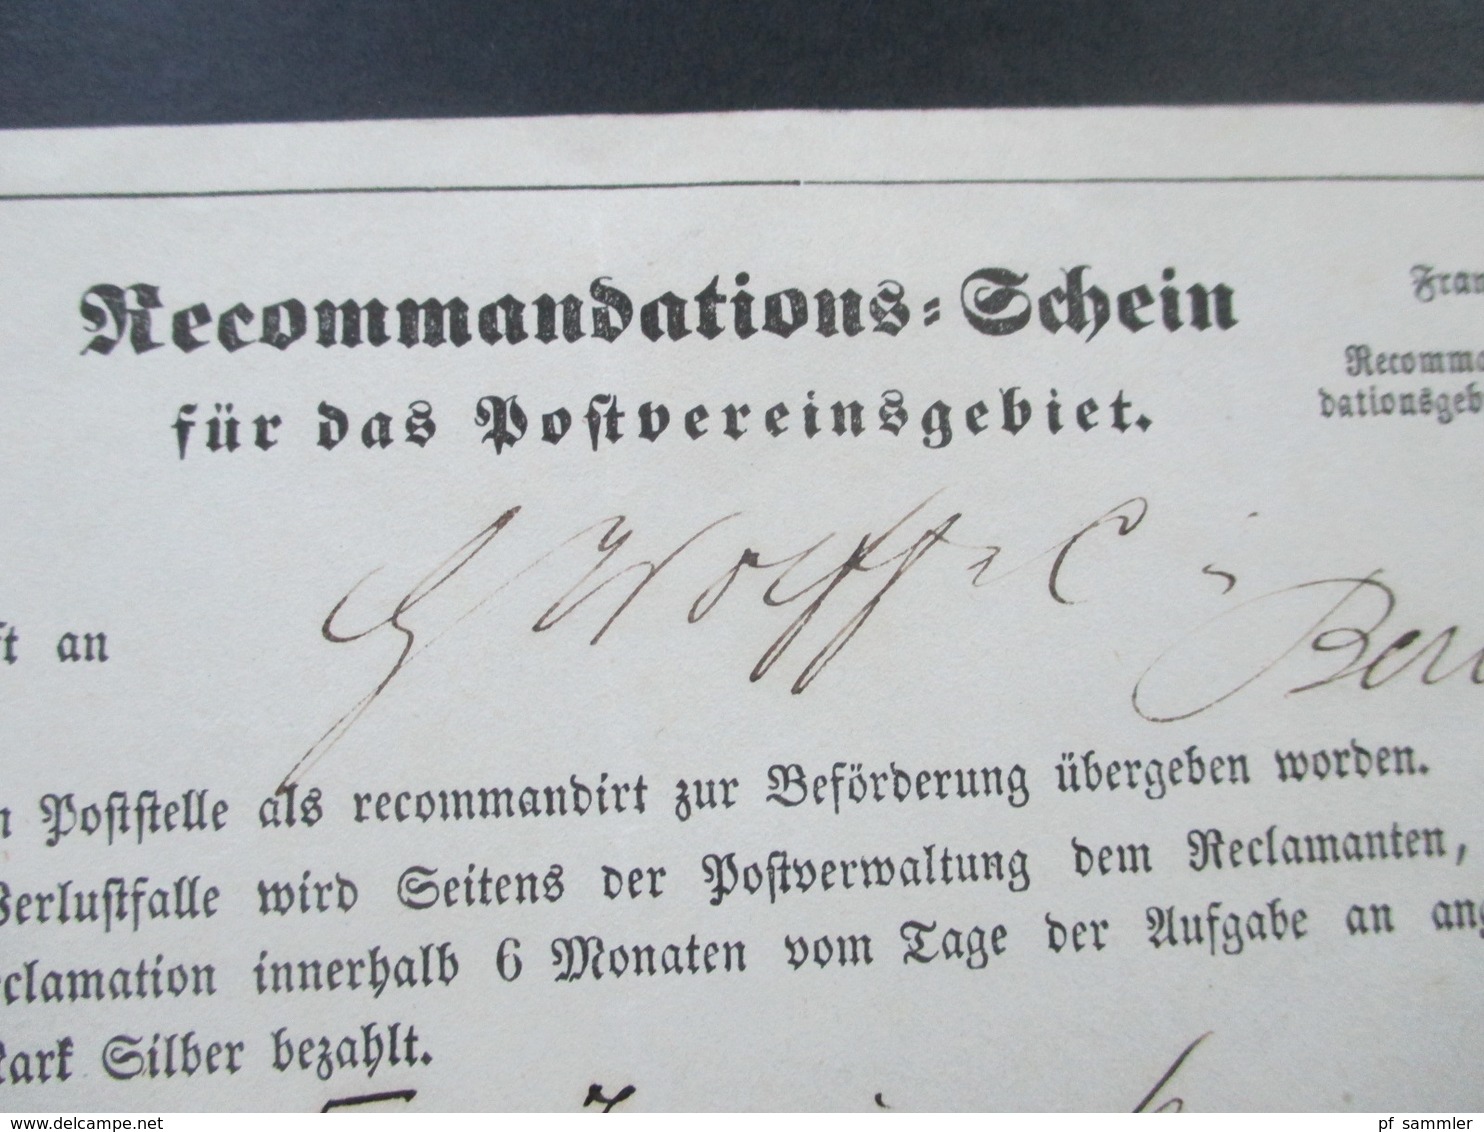 Recommandations-Schein
für das Postvereinsgebiet.
Fran
Recomma
dationsgeb
ft an
Ber
n Poststelle als recommandirt zur Beförderung übergeben worden.
Verlustfalle wird Seitens der Postverwaltung dem Reclamanten,
clamation innerhalb 6 Monaten vom Tage der Aufgabe an ang
Mark Silber bezahlt.
delcampe.net
pf_sammler